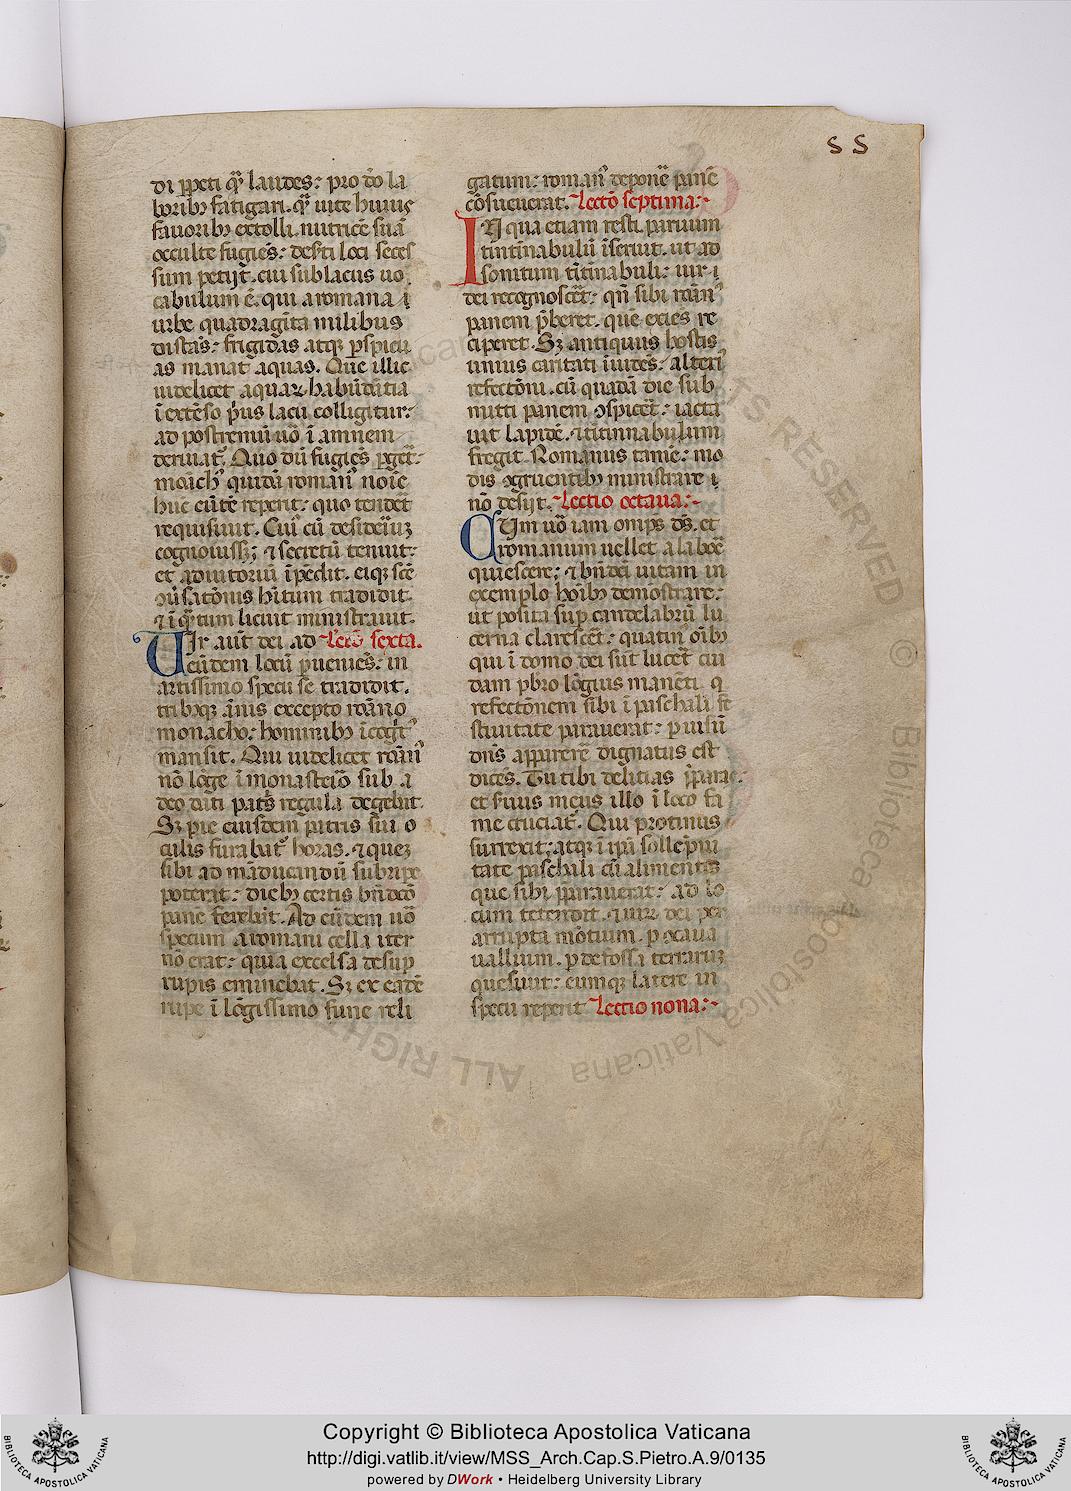 s s
di ꝑpeti qȝ laudes: pro dō la
boribꝫ fatigari. qȝ uite huius
fauoribꝫ extolli. nutricē suā
occulte fugiēs: deserti loci seces
sum petijt. cui sublacus uo
cabulum ē. qui a romana i
urbe quadragīta milibus
distās: frigidas atqꝫ ꝑspicu
as manat aquas. Que illic
uidelicet aquaꝝ habūdātia
ī extēso p̄us lacu colligitur:
ad postremū uo ī amnem
deriuat᷑. Quo dū fugiēs ꝑget᷑:
moāchꝰ quidā romanꝰ noīe
hūc eūtē reperit: quo tendēt
requisiuit. Cuiꝰ cū desideriuꝫ
cognouissꝫ: ⁊ secretū tenuit:
et adiutoriū īpēdit. eiqꝫ scē
ꝯūsatōnis hītum tradidit.
⁊ ī qȝtum licuit ministrauit.
Uir aut̄ dei ad Lectō sexta.
eūdem locū ꝑueniēs: in
artissimo specu se tradidit.
tribꝫqꝫ ānis excepto romāno
monacho: hominibꝫ īcogītꝰ
mansit. Qui uidelicet romānꝰ
nō lōge ī monasterio sub a
deodati patris regula degebat.
Sꝫ pie eiusdem patris sui o
culis furabat᷑ horas. ⁊ quez
sibi ad māducandū subripe
poterat: diebꝫ certis bn̄dcō
pane ferebat. Ad eūdem uō
specum a romani cella iter
nō erat: quia excelsa desup
rupis eminebat. Sꝫ ex eadē
rupe ī lōgissimo fune reli
gatum: romanꝰ deponē panē
cōsueuerat. Lectō septima:
IN qua etiam resti paruum
tintinabulū īseruit. ut ad
sonitum tītinabuli: uir i
dei recognoscēt: qn̄ sibi romānꝰ
panem p̄beret. quē exies re
ciperet. Sꝫ antiquus hostis
unius caritati īuidēs: alteriꝰ
refectōni. cū quadā die sub
mitti panem ꝯspicēt: iacta
uit lapidē. ⁊ tītinnabulum
fregit. Romanus tamē: mo
dis ꝯgruentibꝫ ministrare i
nō desijt. Lectio octaua:
Cum uō iam omps ds. et
romanum uellet a labōe
quiescere: ⁊ bn̄dci uitam in
exemplo hoībꝫ demostrare:
ut posita sup candelabrū lu
cerna claresceret: quatin oībꝫ
qui ī domo dei sūt lucēt cui
dam pbro lōgius manēti. q
refectōnem sibi ī paschali fe
stiuitate parauerat: p uisū
dn̄s apparere dignatus est
dicēs. Tu tibi delitias p̄paras
et seruus meus illo ī loco fa
me cruciat᷑. Qui protinus
surrexit: atqꝫ ī ipā sollempni
tate paschali cū alimentis
que sibi p̄parauerat: ad lo
cum tetendit. ⁊ uirū dei per
arrupta mōtium. p ꝯcaua
uallium. p defossa terraruꝫ
quesiuit: eumqꝫ latere in
specu reperit Lectio nona:
ALL RIGHTS RESERVED © Biblioteca Apostolica Vaticana
BIBLIOTECA APOSTOLICA VATICANA
Copyright © Biblioteca Apostolica Vaticana
http://digi.vatlib.it/view/MSS_Arch.Cap.S.Pietro.A.9/0135
powered by DWork • Heidelberg University Library
BIBLIOTECA APOSTOLICA VATICANA